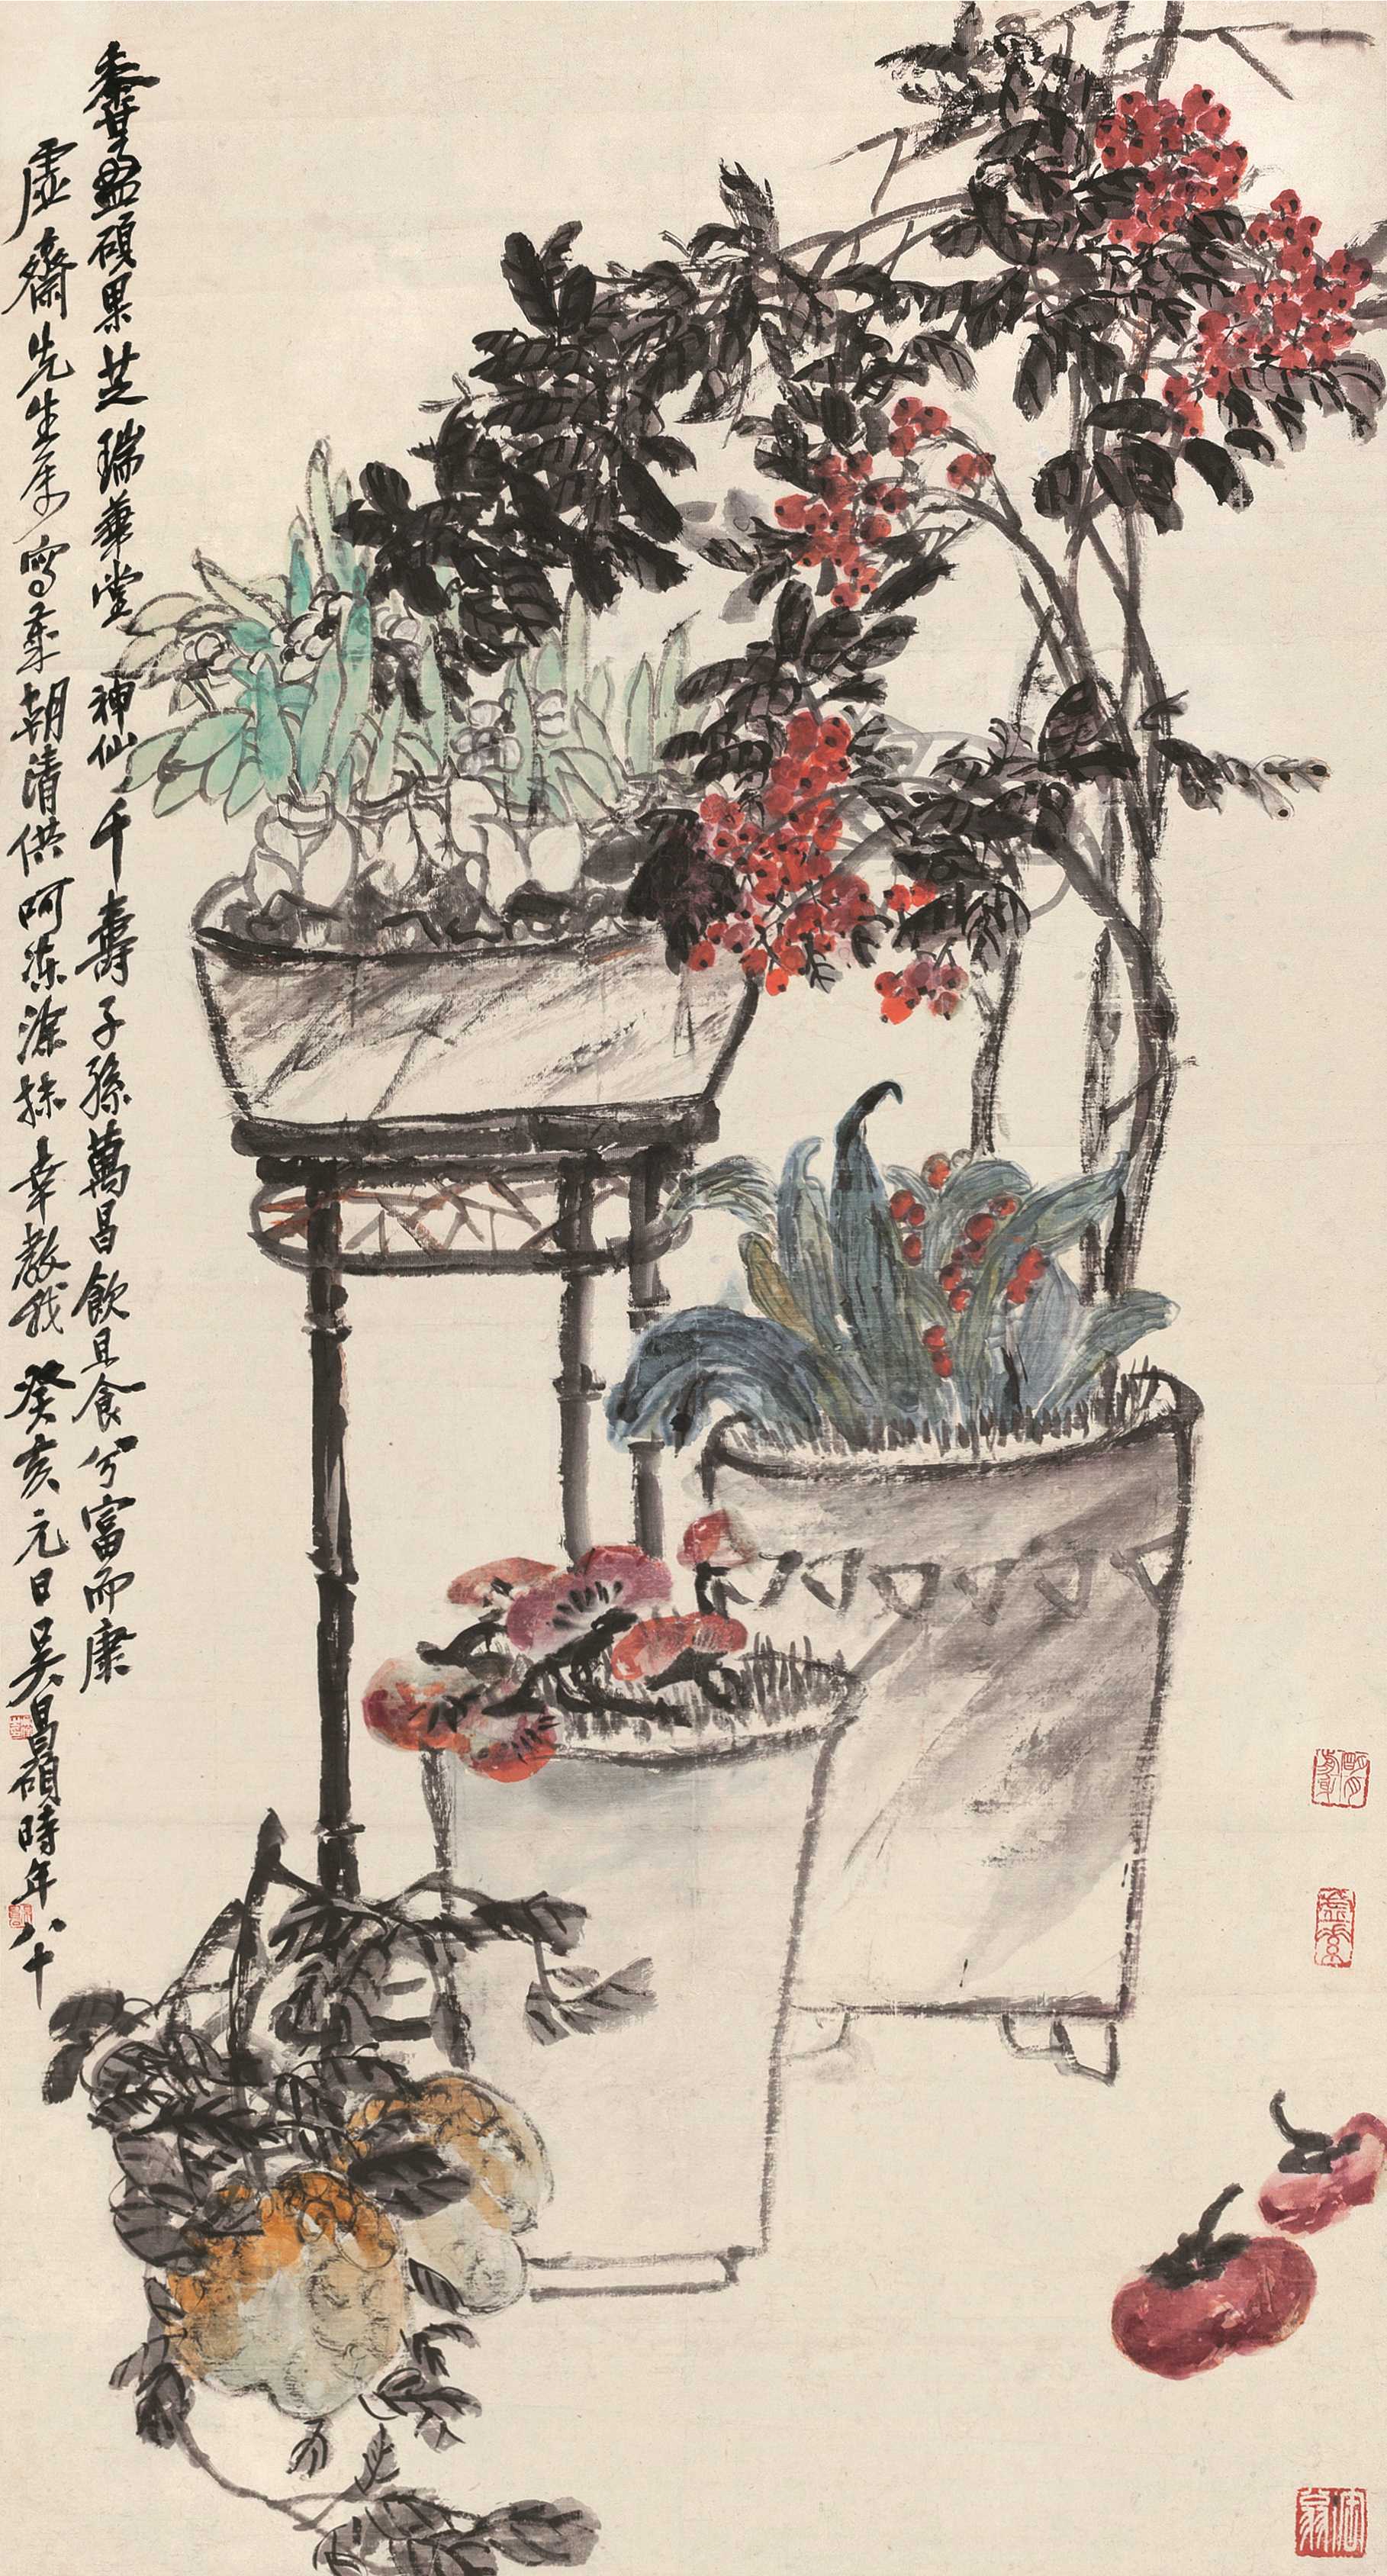 黍豆盈碩果芝瑞華堂神仙千壽子孫萬昌飲且食兮富而康
虛齋先生属寫華朝清供呵凍塗抹幸教我癸亥元日吳昌碩時年八十
虛齋
缶翁